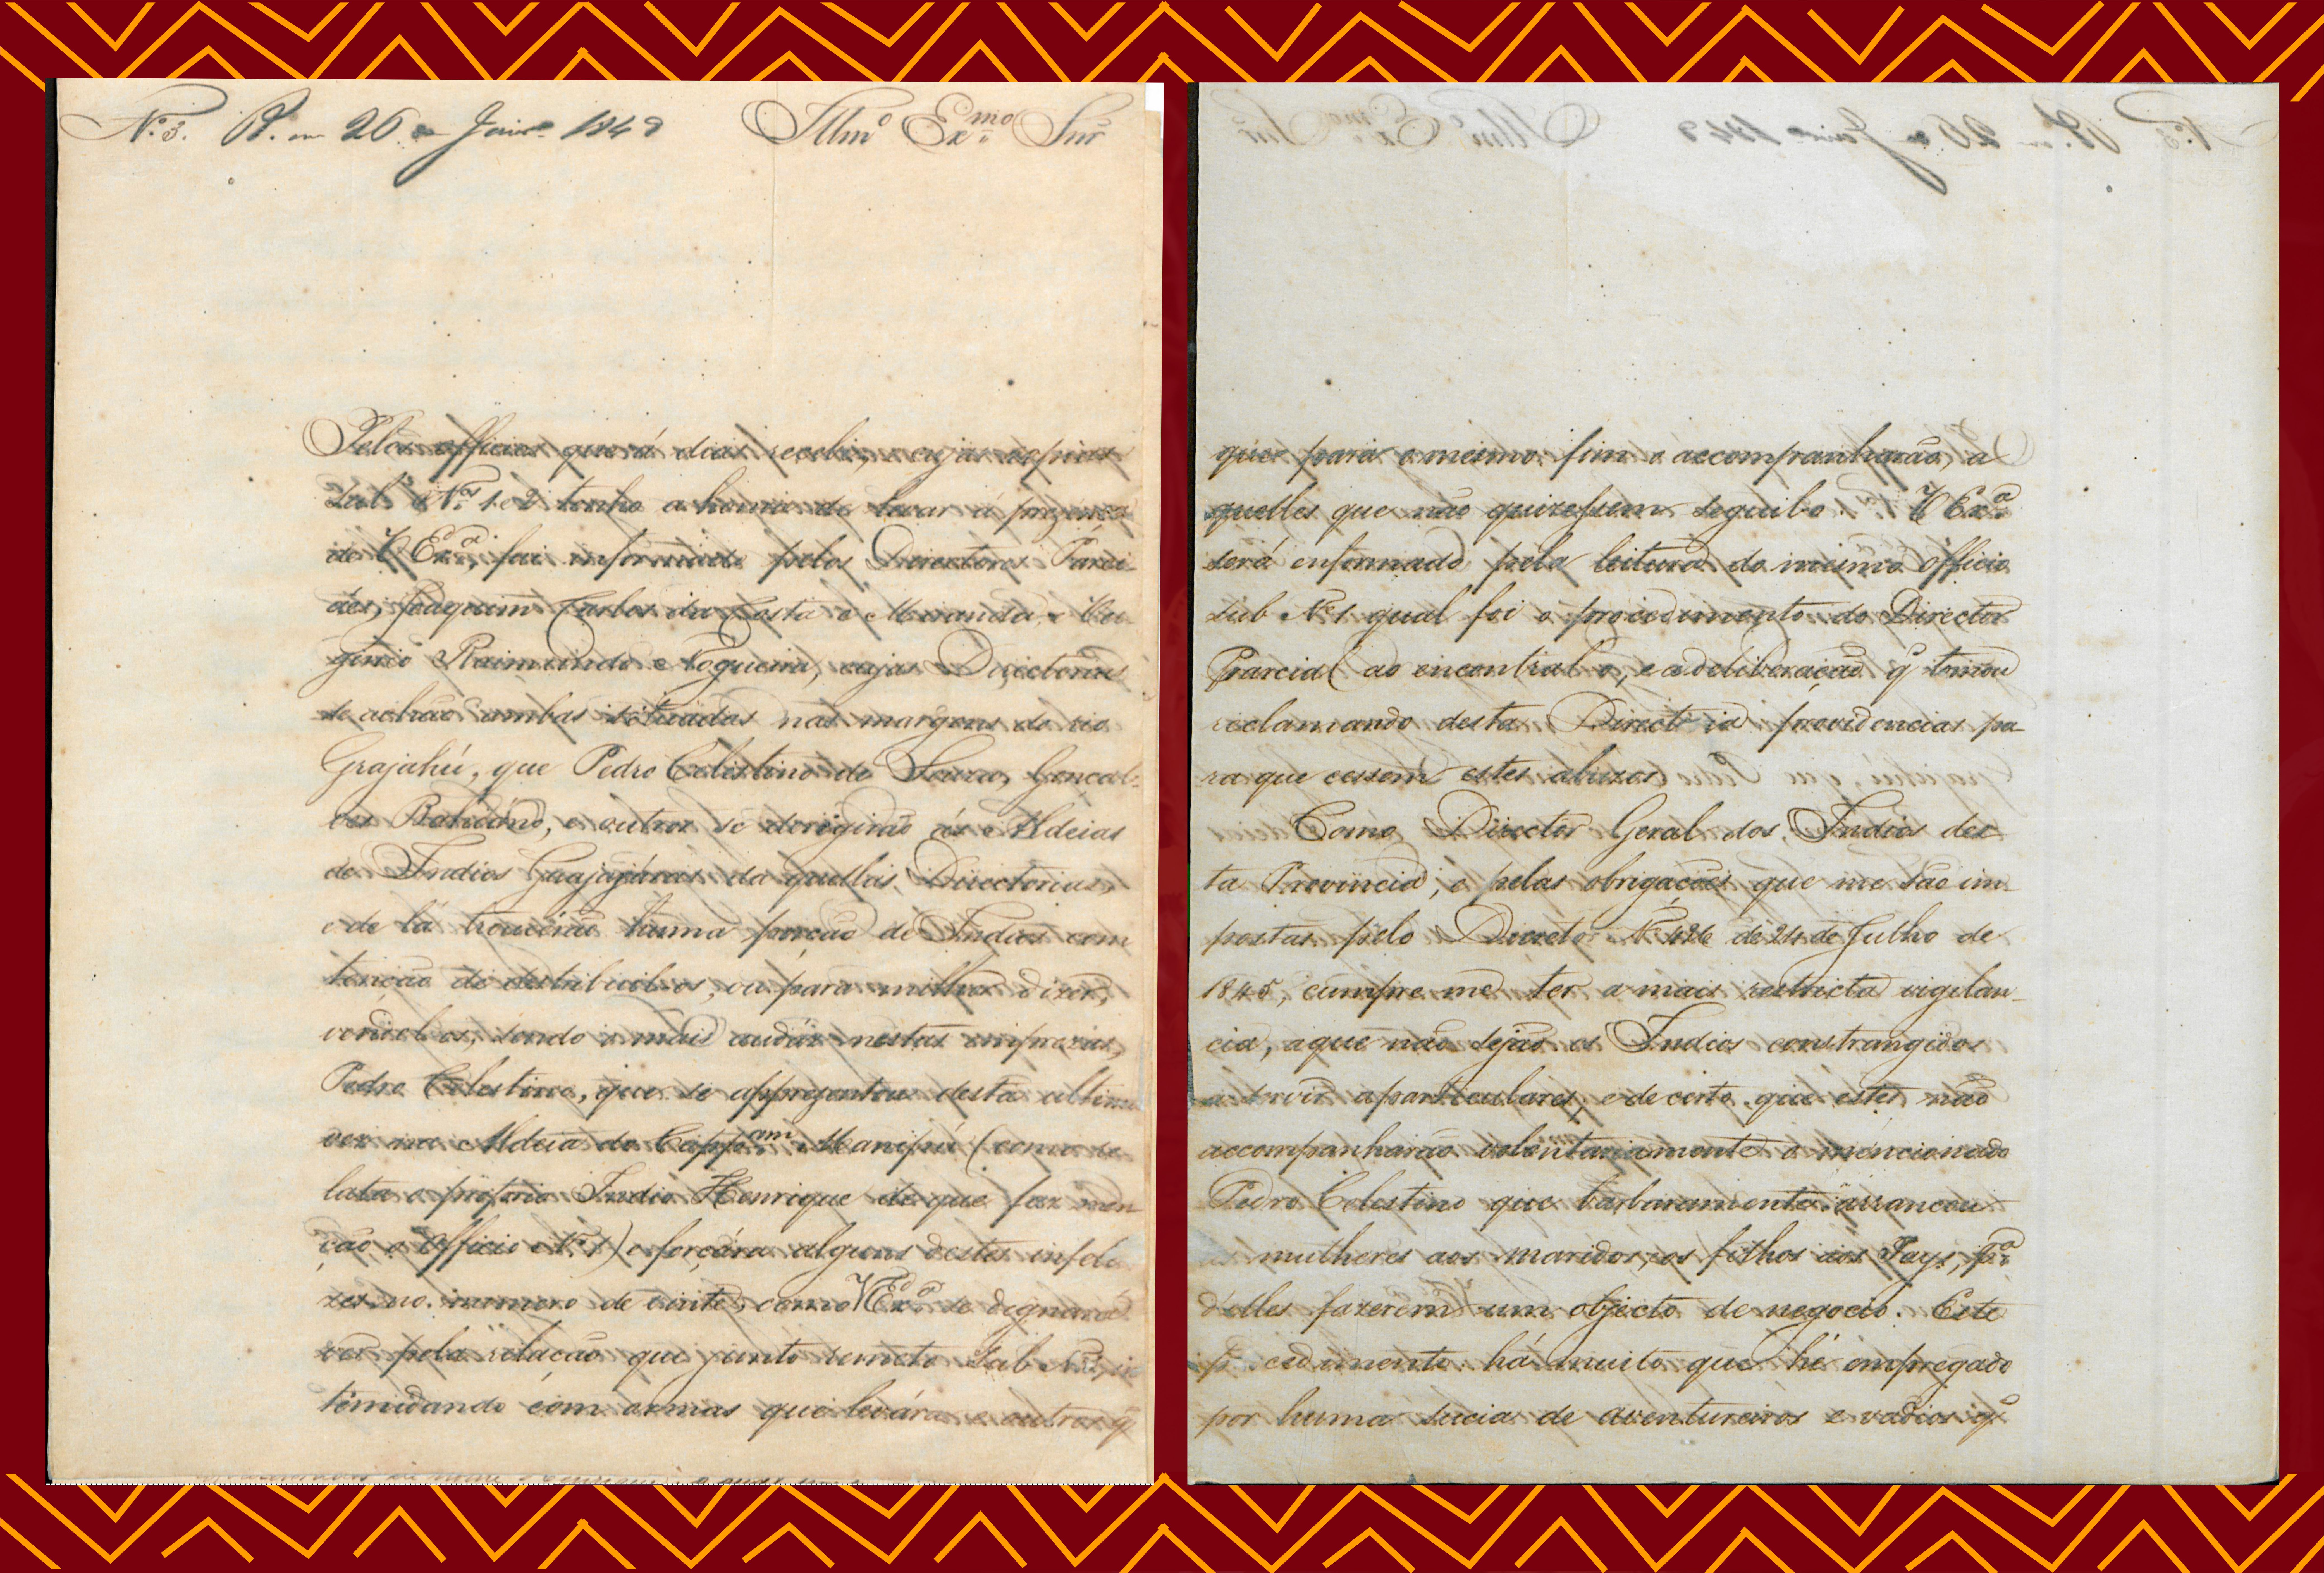 Nº 3. R. em 26 de Janrº 1848
Illmº Exmº Snr
Pelos officios que á dias recebi, e cujas copias
sub Nºs 1 e 2 tenho a honra de levar á prezença
de V Exª, fui informado pelos Directores Parci-
áes, Joaquim Carlos da Costa e Miranda, e
Raimundo e Nogueira, cujas Directorias
se achão ambas situadas nas margens do rio
Grajahú, que Pedro Celestino de Souza, Gonçal-
ves Bahiáno, e outros se derigirão ás Aldeias
de Indios Guajajáras da quellas Directorias,
e de lá trouxérão huma porção de Indios com
tenção de destribuilos, ou para milhor dizer,
vendel os, sendo o mais audáz nestas emprezas,
Pedro Celestino, que se apprezentou desta ultima
vez na Aldeia do Cappam Manipú (como re-
lata o proprio Indio Henrique de que faz men
ção o Officio Nº 1) e forçára alguns destes infeli
zes no numero de vinte, como V Exª se dignará
ver pela relação que junto remeto Sub Nº 3, in
temidando com armas que levára e outros q
que para o mesmo fim o accompanharão, a
quelles que não quizessem seguil-o. V Exª
será enformado pela leitura do mesmo Officio
sub Nº 1 qual foi o procedimento do Director
Parcial ao encontral o, e a deliberação q tomou
reclamando desta Directoria providencias pa
ra que cessem estes abuzos.
Como Director Geral dos Indios des
ta Provincia, e pelas obrigações que me são im
postas pelo Decreto Nº 426 de 24 de Julho de
1845, cumpre me ter a mais restricta vigilan
cia, a que não sejão os Indios constrangidos
a servir a particulares, e de certo que estes não
accompanharão voluntariamente o mencionado
Pedro Celestino que barbaramente arrancou
as mulheres aos maridos, e os filhos aos Pays, pª
d'elles fazerem um objecto de negocio. Este
procedimento há muito que hé empregado
por huma sucia de aventureiros e vadios q